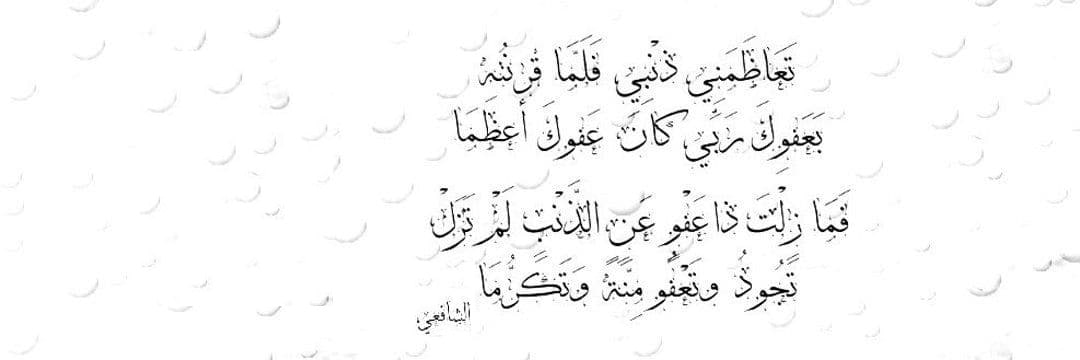 تَعَاظَمَنِي ذَنْبِي فَلَمَّا قَرَنْتُهُ
بِعَفْوِكَ رَبِّي كَانَ عَفْوُكَ أَعْظَمَا
فَمَا زِلْتَ ذَا عَفْوٍ عَنِ الذَّنْبِ لَمْ تَزَلْ
تَجُودُ وَتَعْفُو مِنَّةً وَتَكَرُّمَا
الشافعي